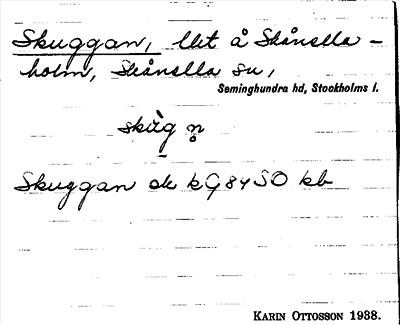 Skuggan, lht å Skånella-
holm, Skånella sn,
Seminghundra hd, Stockholms l.
skùg n̥
Skuggan ek kG84SO kb
KARIN OTTOSSON 1938.